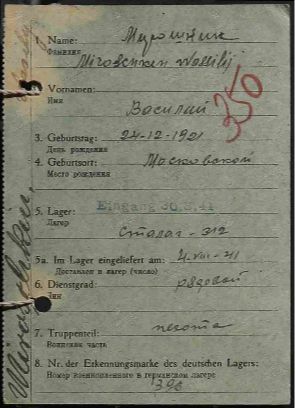 1. Name: Мирошник
Фамилия
Miroschkin Wassilij
Vornamen:
Имя
Василий
350
3. Geburtstag: 24-12-1921
День рождения
4. Geburtsort: Московской
Место рождения
5. Lager: Eingang 30.8.41
Лагер
Сталаг-312
5a. Im Lager eingeliefert am: 4-VIII-41
Доставлен в лагер (число)
6. Dienstgrad: рядовой
Чин
7. Truppenteil: пехота
Воинская часть
8. Nr. der Erkennungsmarke des deutschen Lagers:
Номер военнопленного в германском лагере